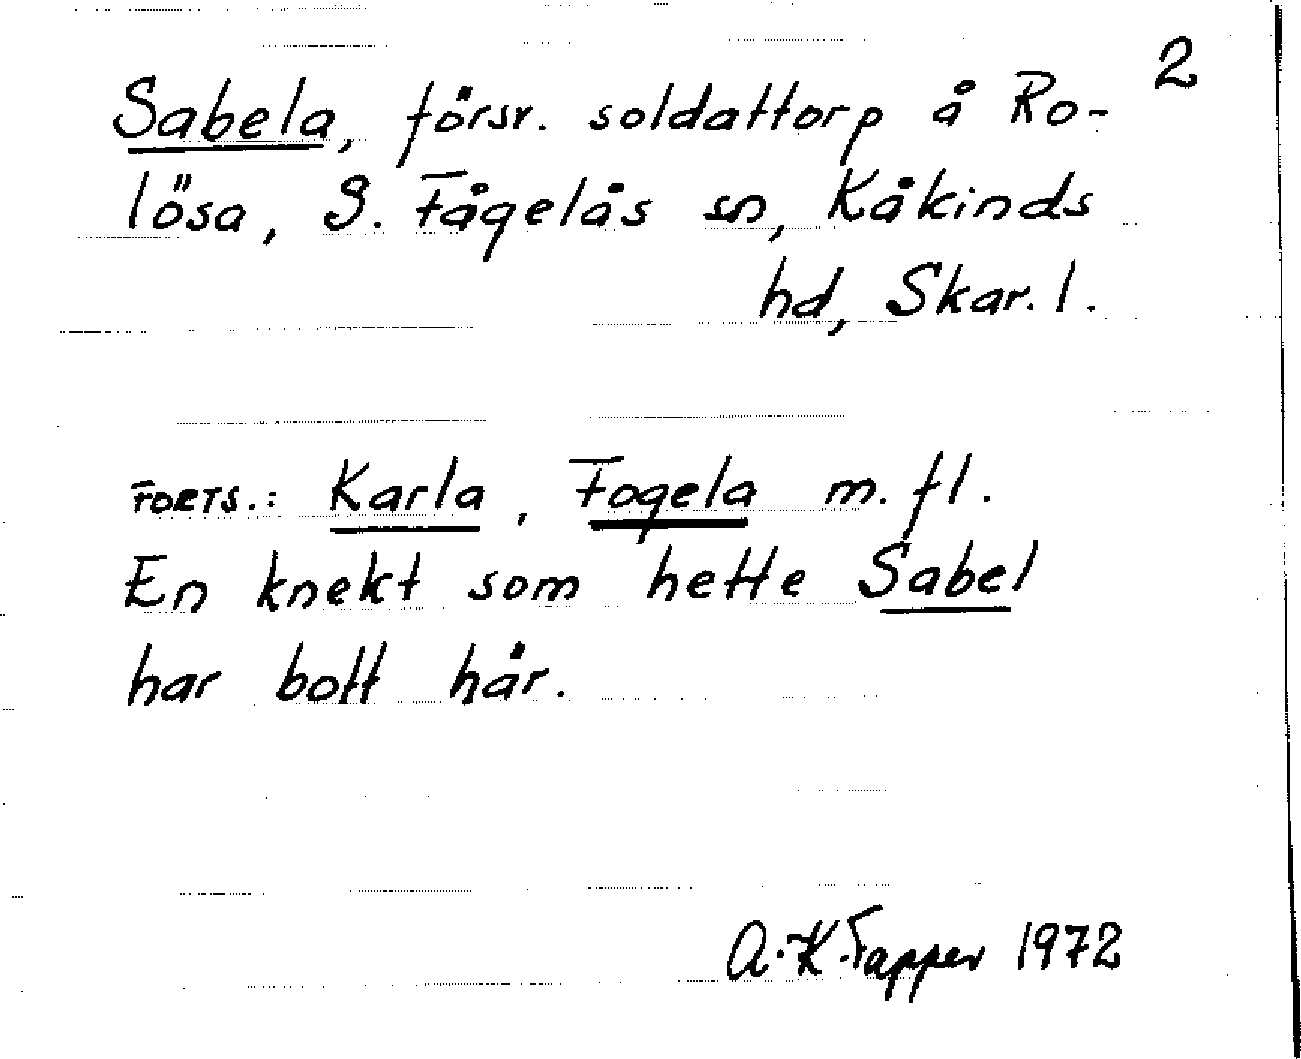 2
Sabela, försv. soldattorp å Ro-
lösa, S. Fågelås sn, Kåkinds
hd, Skar. l.
FORTS.: Karla, Fogela m. fl.
En knekt som hette Sabel
har bott här.
A.-K. Tapper 1972